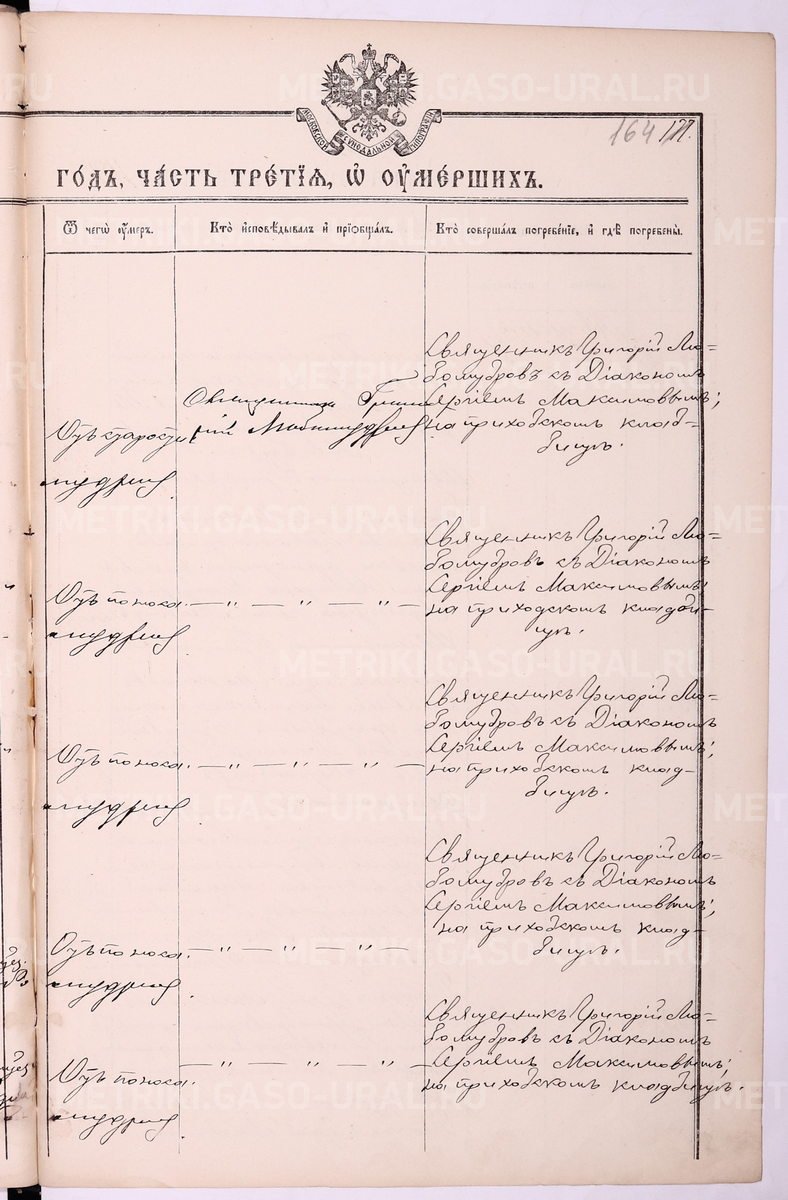 МОСКОВСКОЙ СѴНОДАЛЬНОЙ ТИПОГРАФІИ
164
171.
ГО́ДЪ, ЧА́СТЬ ТРЕ́ТІѦ, Ѡ҆ ОУ҆МЕ́РШИХЪ.
Ѿ чегѡ̀ оу҆́меръ.
Кто̀ и҆сповѣ́дывалъ и҆ прїѻбща́лъ.
Кто̀ соверша́лъ погребе́нїе, и҆ гдѣ̀ погребены̀.
Отъ старости
Священникъ Григо
рій Любомудровъ
Священникъ Григорій Лю=
бомудровъ съ Діакономъ
Сергіемъ Максимовымъ;
на приходскомъ клад-
бищѣ.
Отъ поноса.
— " — " — " —
Священникъ Григорій Лю=
бомудровъ съ Діакономъ
Сергіемъ Максимовымъ;
на приходскомъ кладби-
щѣ.
Отъ поноса.
— " — " — " —
Священникъ Григорій Лю=
бомудровъ съ Діакономъ
Сергіемъ Максимовымъ;
на приходскомъ клад-
бищѣ.
Отъ поноса.
— " — " — " —
Священникъ Григорій Лю=
бомудровъ съ Діакономъ
Сергіемъ Максимовымъ;
на приходскомъ клад-
бищѣ.
Отъ поноса.
— " — " — " —
Священникъ Григорій Лю=
бомудровъ съ Діакономъ
Сергіемъ Максимовымъ;
на приходскомъ кладбищѣ.
METRIKI.GASO-URAL.RU